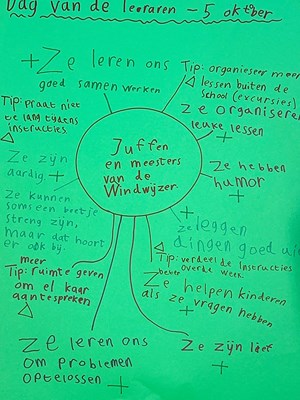 Dag van de leraren - 5 oktober
+ Ze leren ons
goed samen werken
Tip: organiseer meer
lessen buiten de
school (excursies)
Ze organiseren
leuke lessen
+
Tip: praat niet
te lang tijdens
instructies.
Juffen
en meesters
van de
Windwijzer
Ze zijn
aardig +
Ze hebben
humor +
Ze kunnen
soms een beetje
streng zijn,
maar dat hoort
er ook bij.
+
Ze leggen
dingen goed uit
Tip: verdeel de instructies
beter over de week
Ze helpen kinderen
als ze vragen hebben
+
meer
Tip: ruimte geven
om el kaar
aantespreken
Ze leren ons
om problemen
optelossen +
Ze zijn lief
+